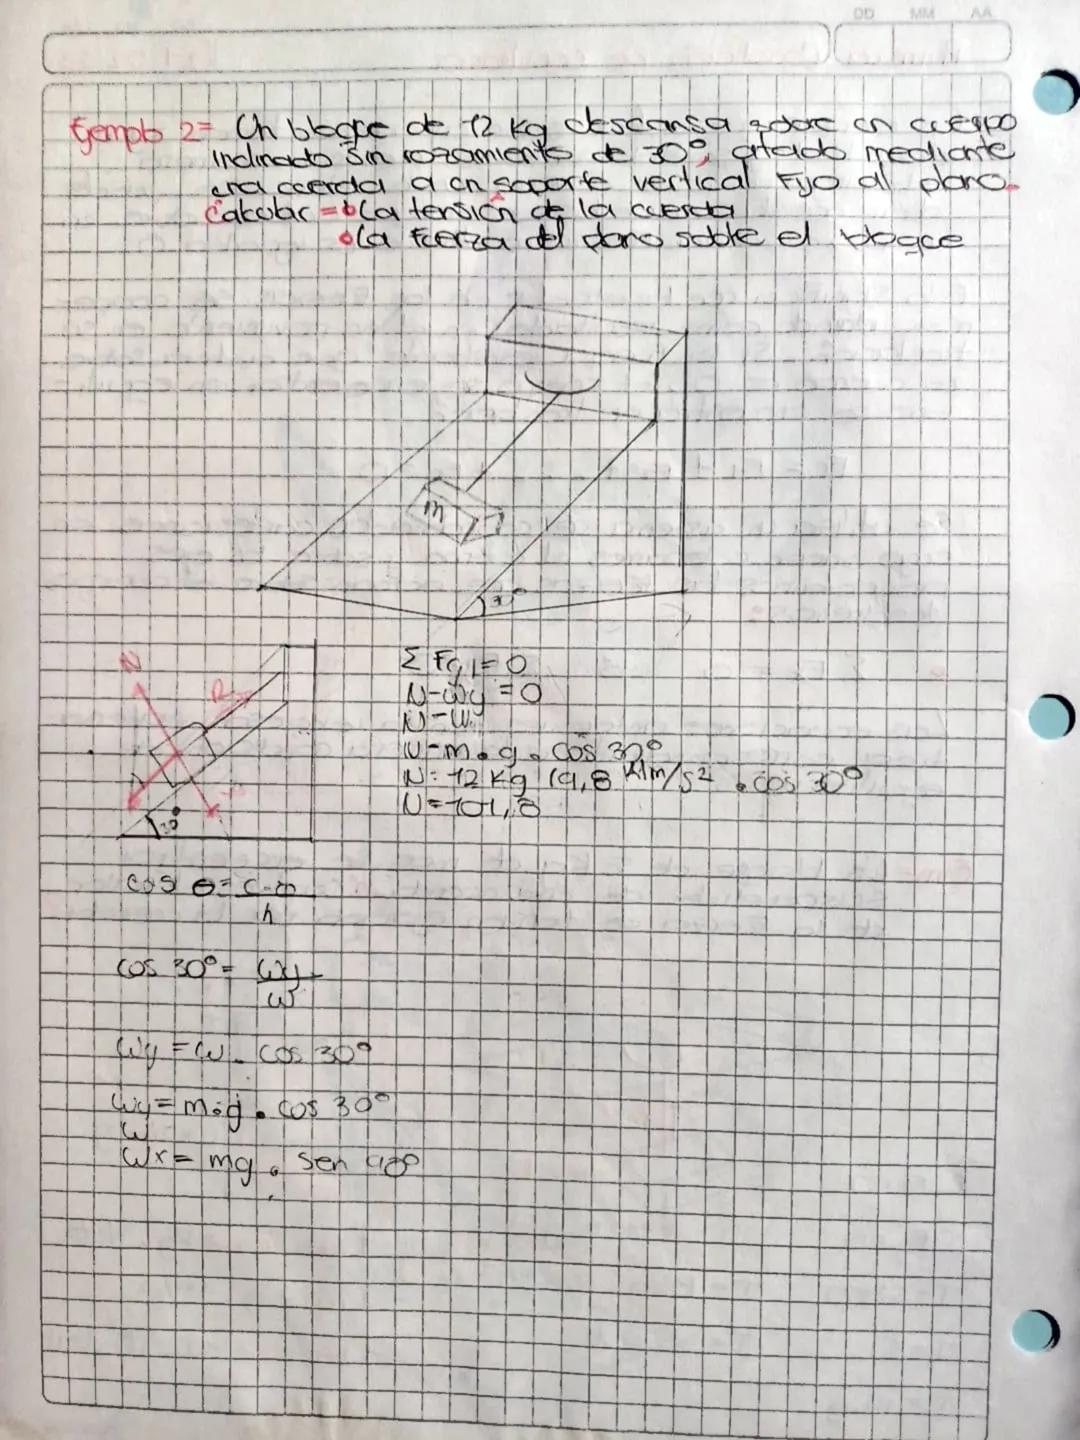 DD MM AA
Ejemplo 2= Un bloque de 12 kg descansa sobre un cuerpo
inclinado sin rozamiento de 30°, atado mediante
una cuerda a un soporte vertical Fijo al plano.
Calcular = •La tensión de la cuerda
•La fuerza del plano sobre el bloque
m
30°
N
30°
Σ Fy = 0
N-Wy = 0
N-W
N=m.g.cos 30°
N= 12 kg (9,8 m/s² .cos 30°
N=101,8
cos θ= c-a
h
cos 30°= Wy
W
Wy = W. cos 30°
Wy= m.g. cos 30°
W
Wx= mg. sen